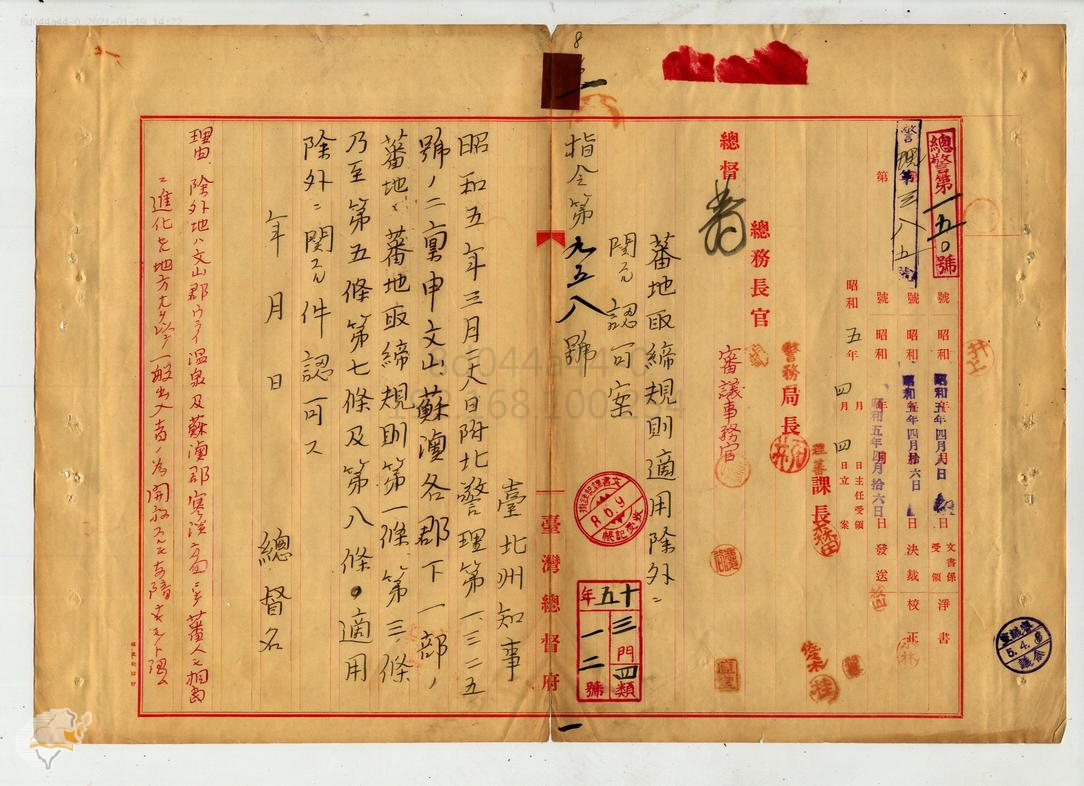 8d044a44-0 2021-01-19 14:22
總警第一五〇號
警理第三八五號
第 號
昭和五年四月八日 文書係受領 淨書
昭和五年四月拾六日 決裁 校正
昭和五年四月拾六日 發送
昭和五年四月四日立案
月 日主任受領
理蕃課長
警務局長
總務長官
審議事務官
總督
蕃地取締規則適用除外ニ
関スル認可案
指令第九五八號
十五年三門四類一二號
臺灣總督府
臺北州知事
昭和五年三月二十八日附北警理第一、三二五
號ノ二稟申文山、蘇澳各郡下一部ノ
蕃地ヲ蕃地取締規則第一條、第三條
乃至第五條第七條及第八條ノ適用
除外ニ関スル件認可ス
年 月 日
總督名
理由 除外地ハ文山郡ウライ温泉及蘇澳郡寒溪方面ニシテ蕃人モ相當
ニ進化セル地方ナルヲ以テ一般出入者ノ為開放スルモ支障ナキモノト認ム